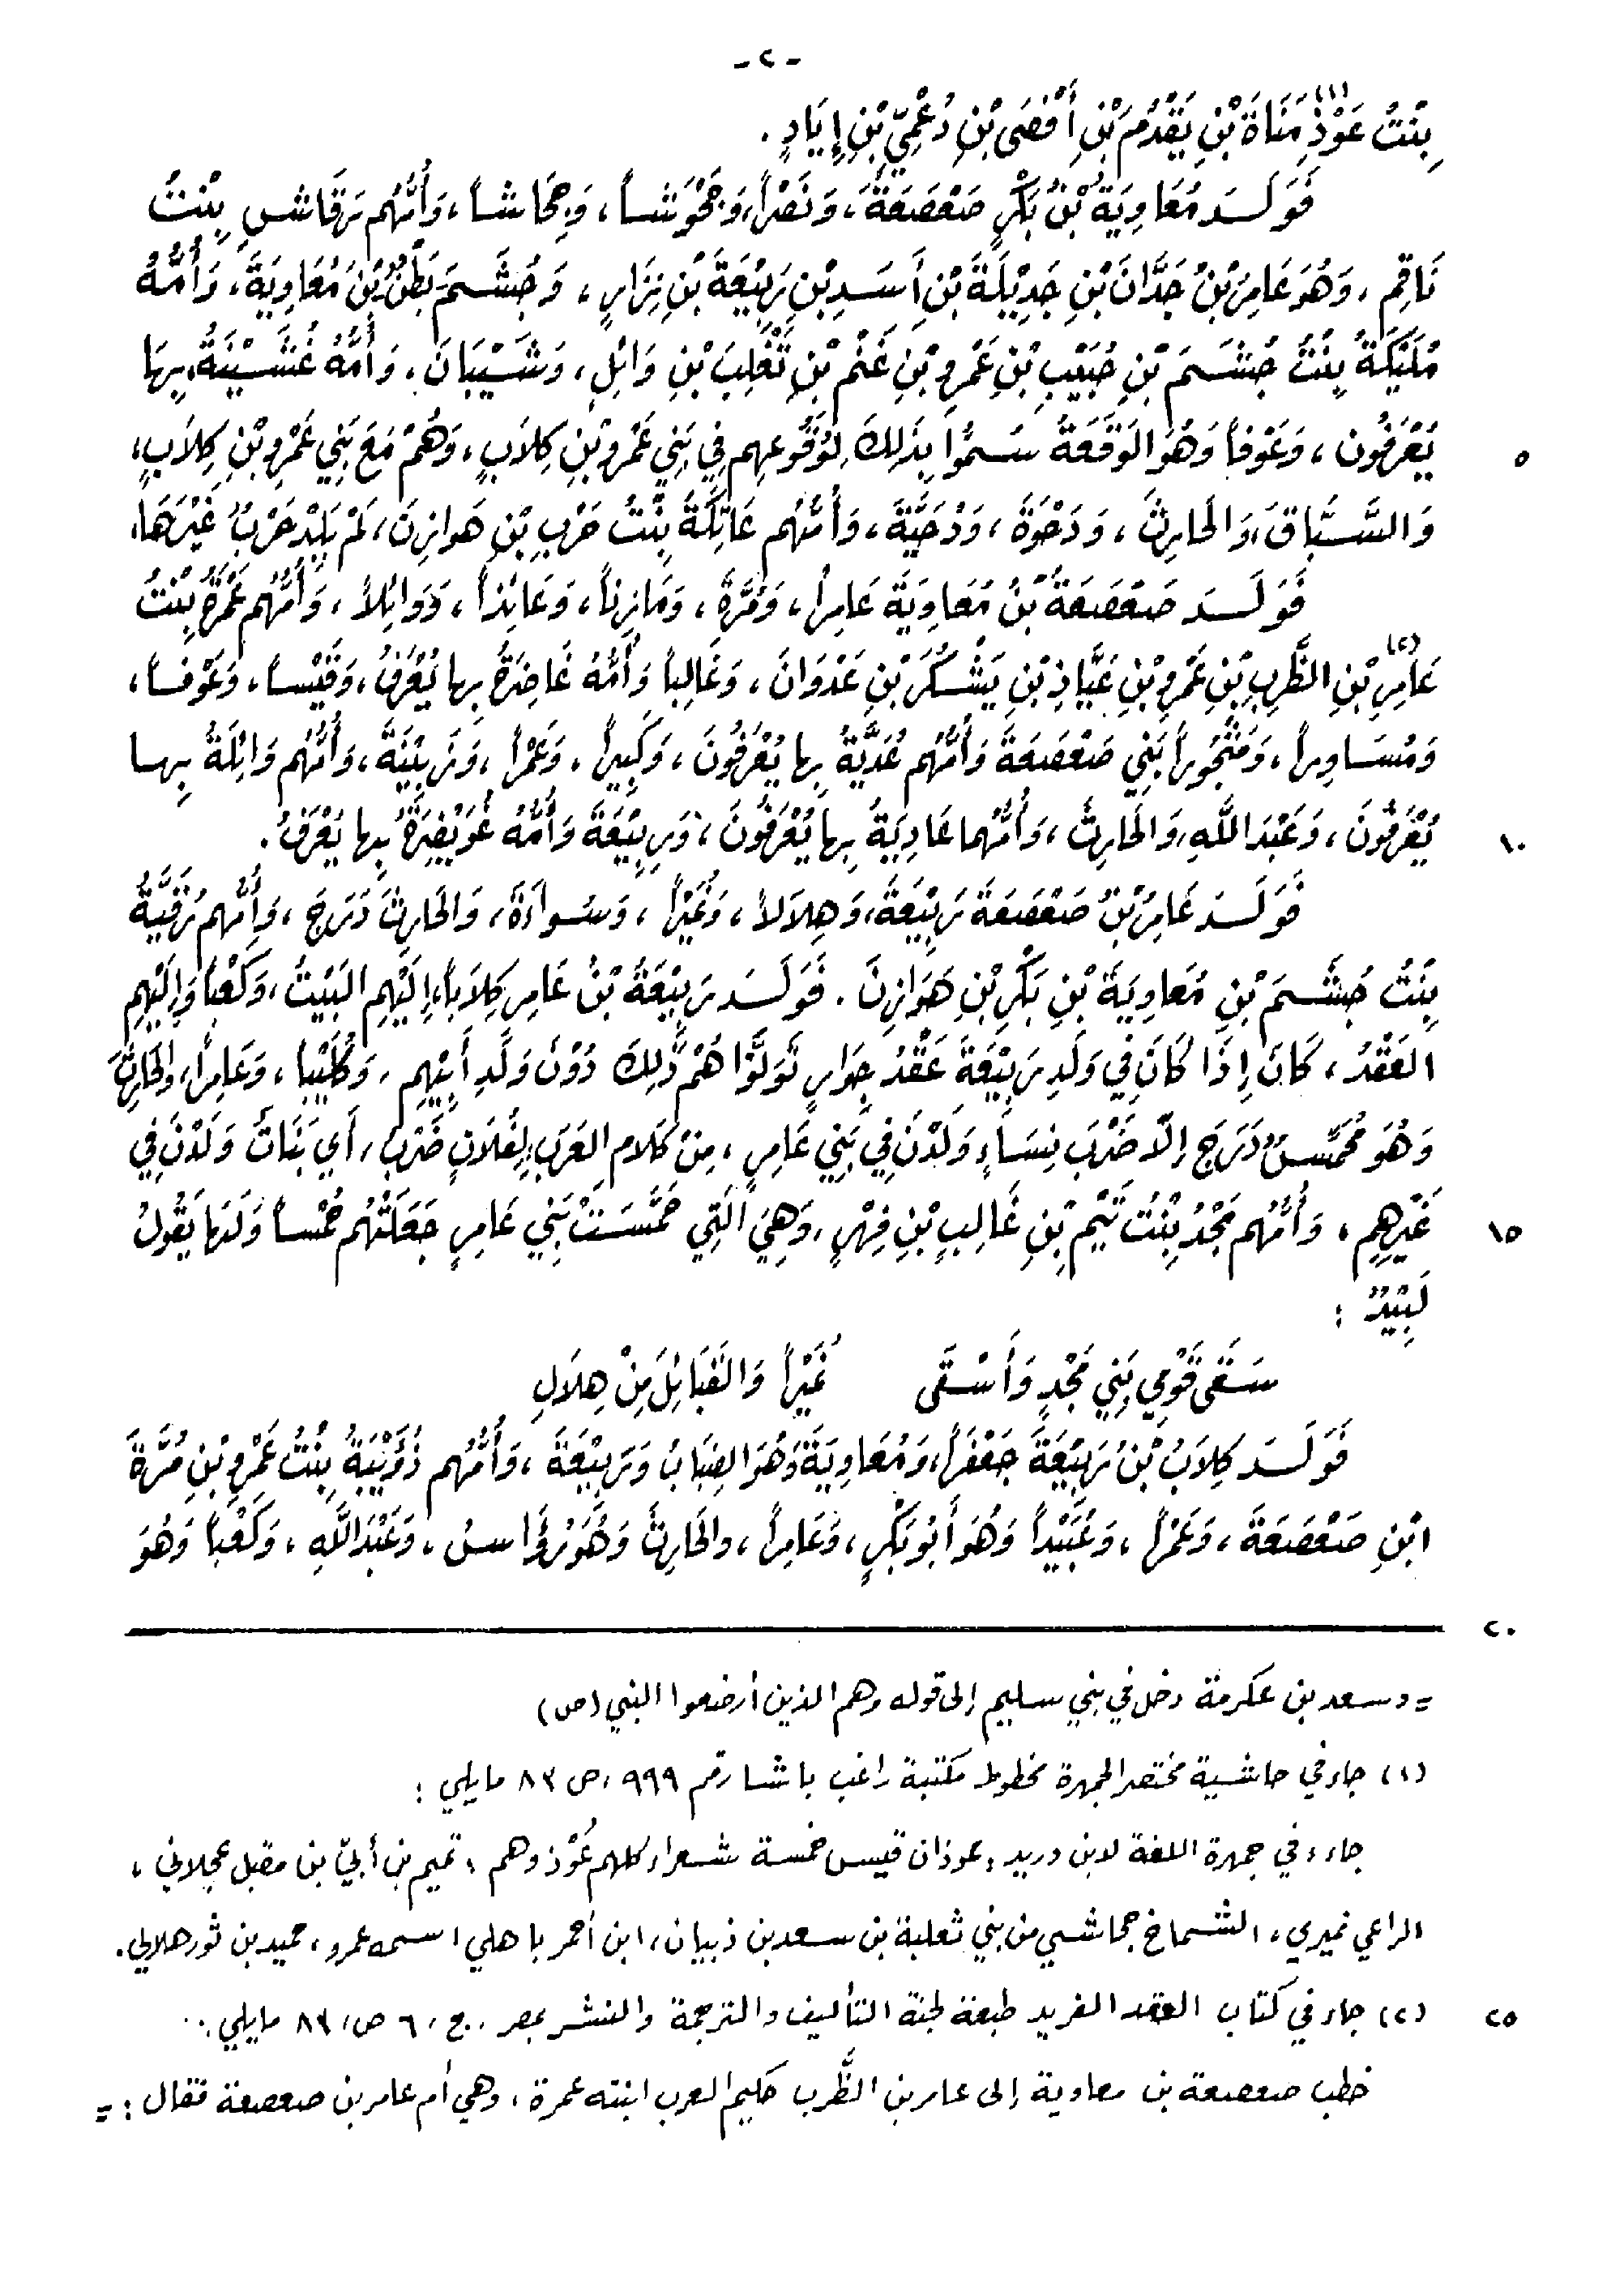 -٢-
بِنْتُ عَوْذِ(١) مَنَاةَ بْنِ يَقْدُمَ بْنِ أَفْصَى بْنِ دُعْمِيِّ بْنِ إِيَادٍ.
فَوَلَدَ مُعَاوِيَةُ بْنُ بَكْرٍ صَعْصَعَةَ، وَنَصْراً، وَجَحْوَشاً، وَجِحَاشاً، وَأُمُّهُم رَقَاشِ بِنْتُ
نَاقِمٍ، وَهُوَ عَامِرُ بْنُ جَدَّانَ بْنِ جَدِيْلَةَ بْنِ أَسَدِ بْنِ رَبِيْعَةَ بْنِ نِزَارٍ، وَجُشَمَ بَطْنٌ بْنَ مُعَاوِيَةَ، وَأُمُّهُ
مُلَيْكَةُ بِنْتُ جُشَمَ بْنِ حُبَيْبِ بْنِ عَمْرِو بْنِ غَنْمِ بْنِ تَغْلِبَ بْنِ وَائِلٍ، وَشَيْبَانَ، وَأُمُّهُ عُشَيْنَةُ، بِهَا
يُعْرَفُون، وَعَوْفاً وَهُوَ الوَقَعَةُ سُمُّوا بِذَلِكَ لِوُقُوعِهِم فِي بَنِي عَمْرِو بْنِ كِلاَبٍ، وَهُمْ مَعَ بَنِي عَمْرِو بْنِ كِلاَبٍ،
٥
وَالسَّبَّاقَ، وَالحَارِثَ، وَدَحْوَةَ، وَدُحَيَّةَ، وَأُمُّهُم عَاتِكَةُ بِنْتُ حَرْبِ بْنِ هَوازِنَ، لَمْ يَلِدْ حَرْبٌ غَيْرَهَا.
فَوَلَدَ صَعْصَعَةُ بْنُ مُعَاوِيَةَ عَامِراً، وَمُرَّةَ، وَمَازِناً، وَعَائِذاً، وَوَائِلاً، وَأُمُّهُم عَمْرَةُ بِنْتُ
عَامِرِ(٢) بْنِ الظَّرِبِ بْنِ عَمْرِو بْنِ عَيَّاذِ بْنِ يَشْكُرَ بْنِ عَدْوَانَ، وَغَالِباً وَأُمُّهُ غَاضِرَةُ بِها يُعْرَفُ، وَقَيْساً، وَعَوْفاً،
وَمُسَاوِراً، وَمَنْجُوراً بَنِي صَعْصَعَةَ وَأُمُّهُم عُدَيَّةُ بِها يُعْرَفُونَ، وَكَبِيراً، وَعَمْراً، وَزَبِيْنَةَ، وَأُمُّهُم وَائِلَةُ بِهَا
يُعْرَفُونَ، وَعَبْدَ اللَّهِ، وَالحَارِثَ، وَأُمُّهُما عَادِيَةُ بِها يُعْرَفُونَ، وَرَبِيْعَةَ وَأُمُّهُ عُوَيْصِرَةُ بِها يُعْرَفُ.
١٠
فَوَلَدَ عَامِرُ بْنُ صَعْصَعَةَ رَبِيْعَةَ، وَهِلاَلاً، وَنُمَيْراً، وَسُواءَةَ، وَالحَارِثَ دَرَجَ، وَأُمُّهُم رُقَيَّةُ
بِنْتُ جُشَمَ بْنِ مُعَاوِيَةَ بْنِ بَكْرِ بْنِ هَوَازِنَ. فَوَلَدَ رَبِيْعَةُ بْنُ عَامِرٍ كِلاَباً، إِلَيْهِمِ البَيْتُ، وَكَعْباً وَإِلَيْهِمِ
العَقْدُ، كَانَ إِذَا كَانَ فِي وَلَدِ رَبِيْعَةَ عَقْدُ جِوَارٍ تَوَلَّوا هُمْ ذَلِكَ دُوْنَ وَلَدِ أَبِيْهِم، وَكُلَيْباً، وَعَامِراً، وَالحَارِثَ
وَهُوَ مُحَمَّسٌ دَرَجَ إلاّ ضَرْبَ نِسَاءٍ وَلَدْنَ فِي بَنِي عَامِرٍ، مِنْ كَلامِ العَرَبِ: لِفُلاَنٍ ضَرْبٌ، أَي بَنَاتٌ وَلَدْنَ فِي
غَيْرِهِمِ، وَأُمُّهُم مَجْدُ بِنْتُ تَيْمِ بْنِ غَالِبِ بْنِ فِهْرٍ، وَهِيَ الَّتِي حَمَّسَتْ بَنِي عَامِرٍ جَعَلَتْهُم حُمْساً وَلَهَا يَقُولُ
١٥
لَبِيْدٌ:
سَقَى قَوْمِي بَنِي مَجْدٍ وَأَسْقَى    نُمَيْراً وَالقَبَائِلَ مِنْ هِلاَلِ
فَوَلَدَ كِلاَبُ بْنُ رَبِيْعَةَ جَعْفَراً، وَمُعَاوِيَةَ وَهُوَ الضِبَابُ وَرَبِيْعَةَ، وَأُمُّهُم ذُؤَيْبَةُ بِنْتُ عَمْرِو بْنِ مُرَّةَ
ابْنِ صَعْصَعَةَ، وَعَمْراً، وَعُبَيْداً وَهُوَ أَبُو بَكْرٍ، وَعَامِراً، والحَارِثَ وَهُوَ رُؤَاسُ، وَعَبْدَ اللَّهِ، وَكَعْباً وَهُوَ
٢٠
= وسعد بن عكرمة دخل في بني سليم إلى قوله وهم الذين أرضعوا النبي (ص)
(١) جاء في حاشية مختصر الجمهرة مخطوط مكتبة راغب باشا رقم ٩٩٩، ص ٨٣ مايلي:
جاء، في جمهرة اللغة لابن دريد: عوذان قيس خمسة شعراء كلهم عُوْذ وهم: تميم بن أبيّ بن مقبل عجلاني،
الراعي نميري، الشماخ جحاشي من بني ثعلبة بن سعد بن ذبيان، ابن أحمر باهلي اسمه عمرو، حميد بن ثور هلالي.
(٢) جاء في كتاب العقد الفريد طبعة لجنة التأليف والترجمة والنشر بمصر، ج، ٦ ص، ٨٣ مايلي:
٢٥
خطب صعصعة بن معاوية إلى عامر بن الظَّرب حكيم العرب ابنته عمرة، وهي أم عامر بن صعصعة فقال: =